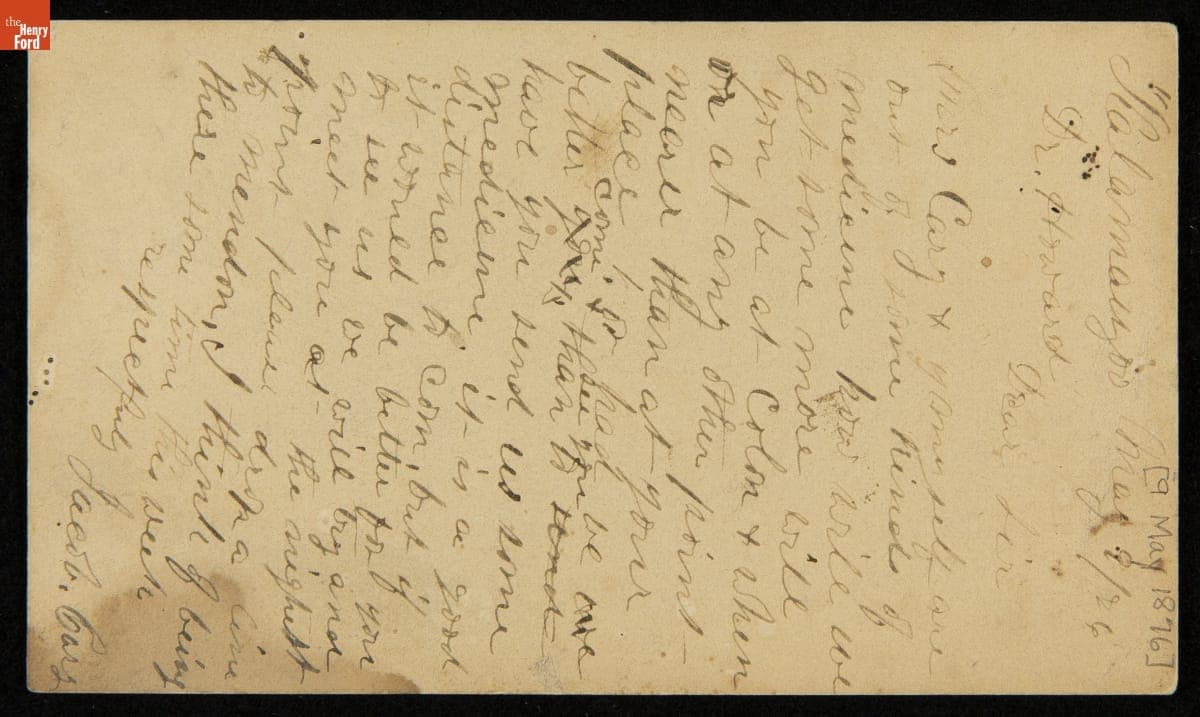 the
Henry
Ford
Kalamazoo May 9/76
[9 May 1876]
Dr. Howard
Dear Sir
Mrs Cary & yourself are
out of some kind of
medicine how will we
get some more will
you be at Colon & when
or at any other point
nearer than at your
place
come, so had
better you than to send
have you send us some
medicine it is a good
distance to com but if
it woned be better for you
to see us we will try and
meet you at the nighest
point please drop a line
to mendon, I think of being
there some time this week
respectfuly
Jacob. Cary